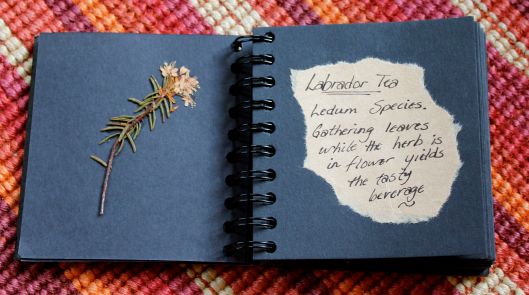 Labrador Tea
Ledum Species.
Gathering leaves
while the herb is
in flower yields
the tasty
beverage